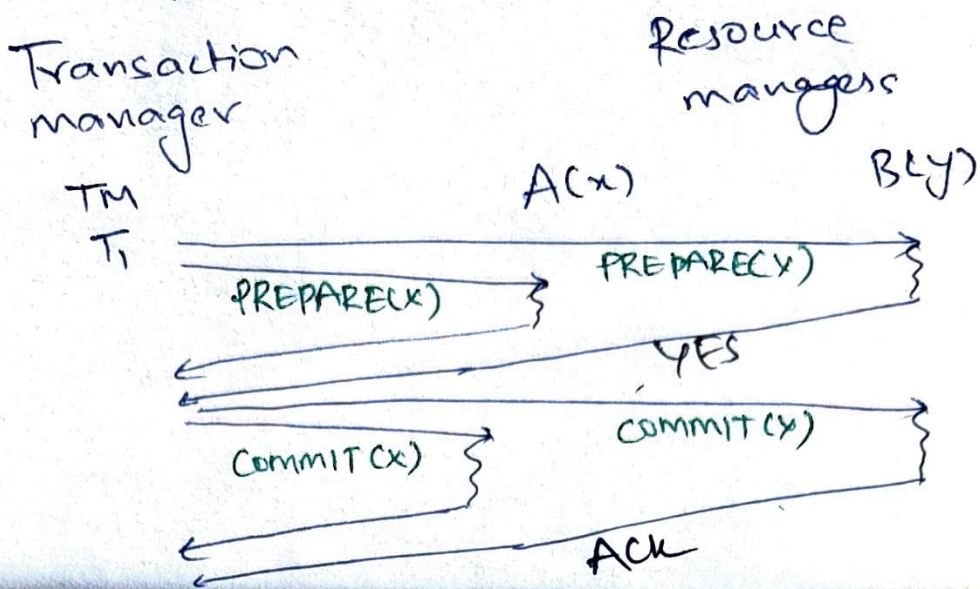 Transaction
manager
Resource
managess
TM
A(x)
B(y)
T1
PREPARE(Y)
PREPARE(X)
YES
COMMIT (Y)
COMMIT (X)
ACK